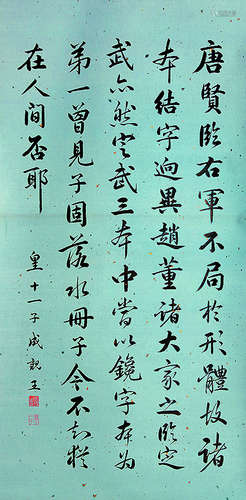 唐賢臨右軍不局於形體故諸
本結字迥異趙董諸大家之臨定
武亦然定武三本中當以鏡字本為
第一曾見子固落水冊子今不知猶
在人間否耶
皇十一子成親王